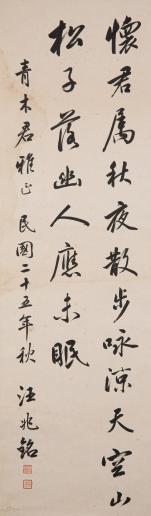 懷君屬秋夜散步咏涼天空山
松子落幽人應未眠
青木君雅正 民國二十五年秋 汪兆銘